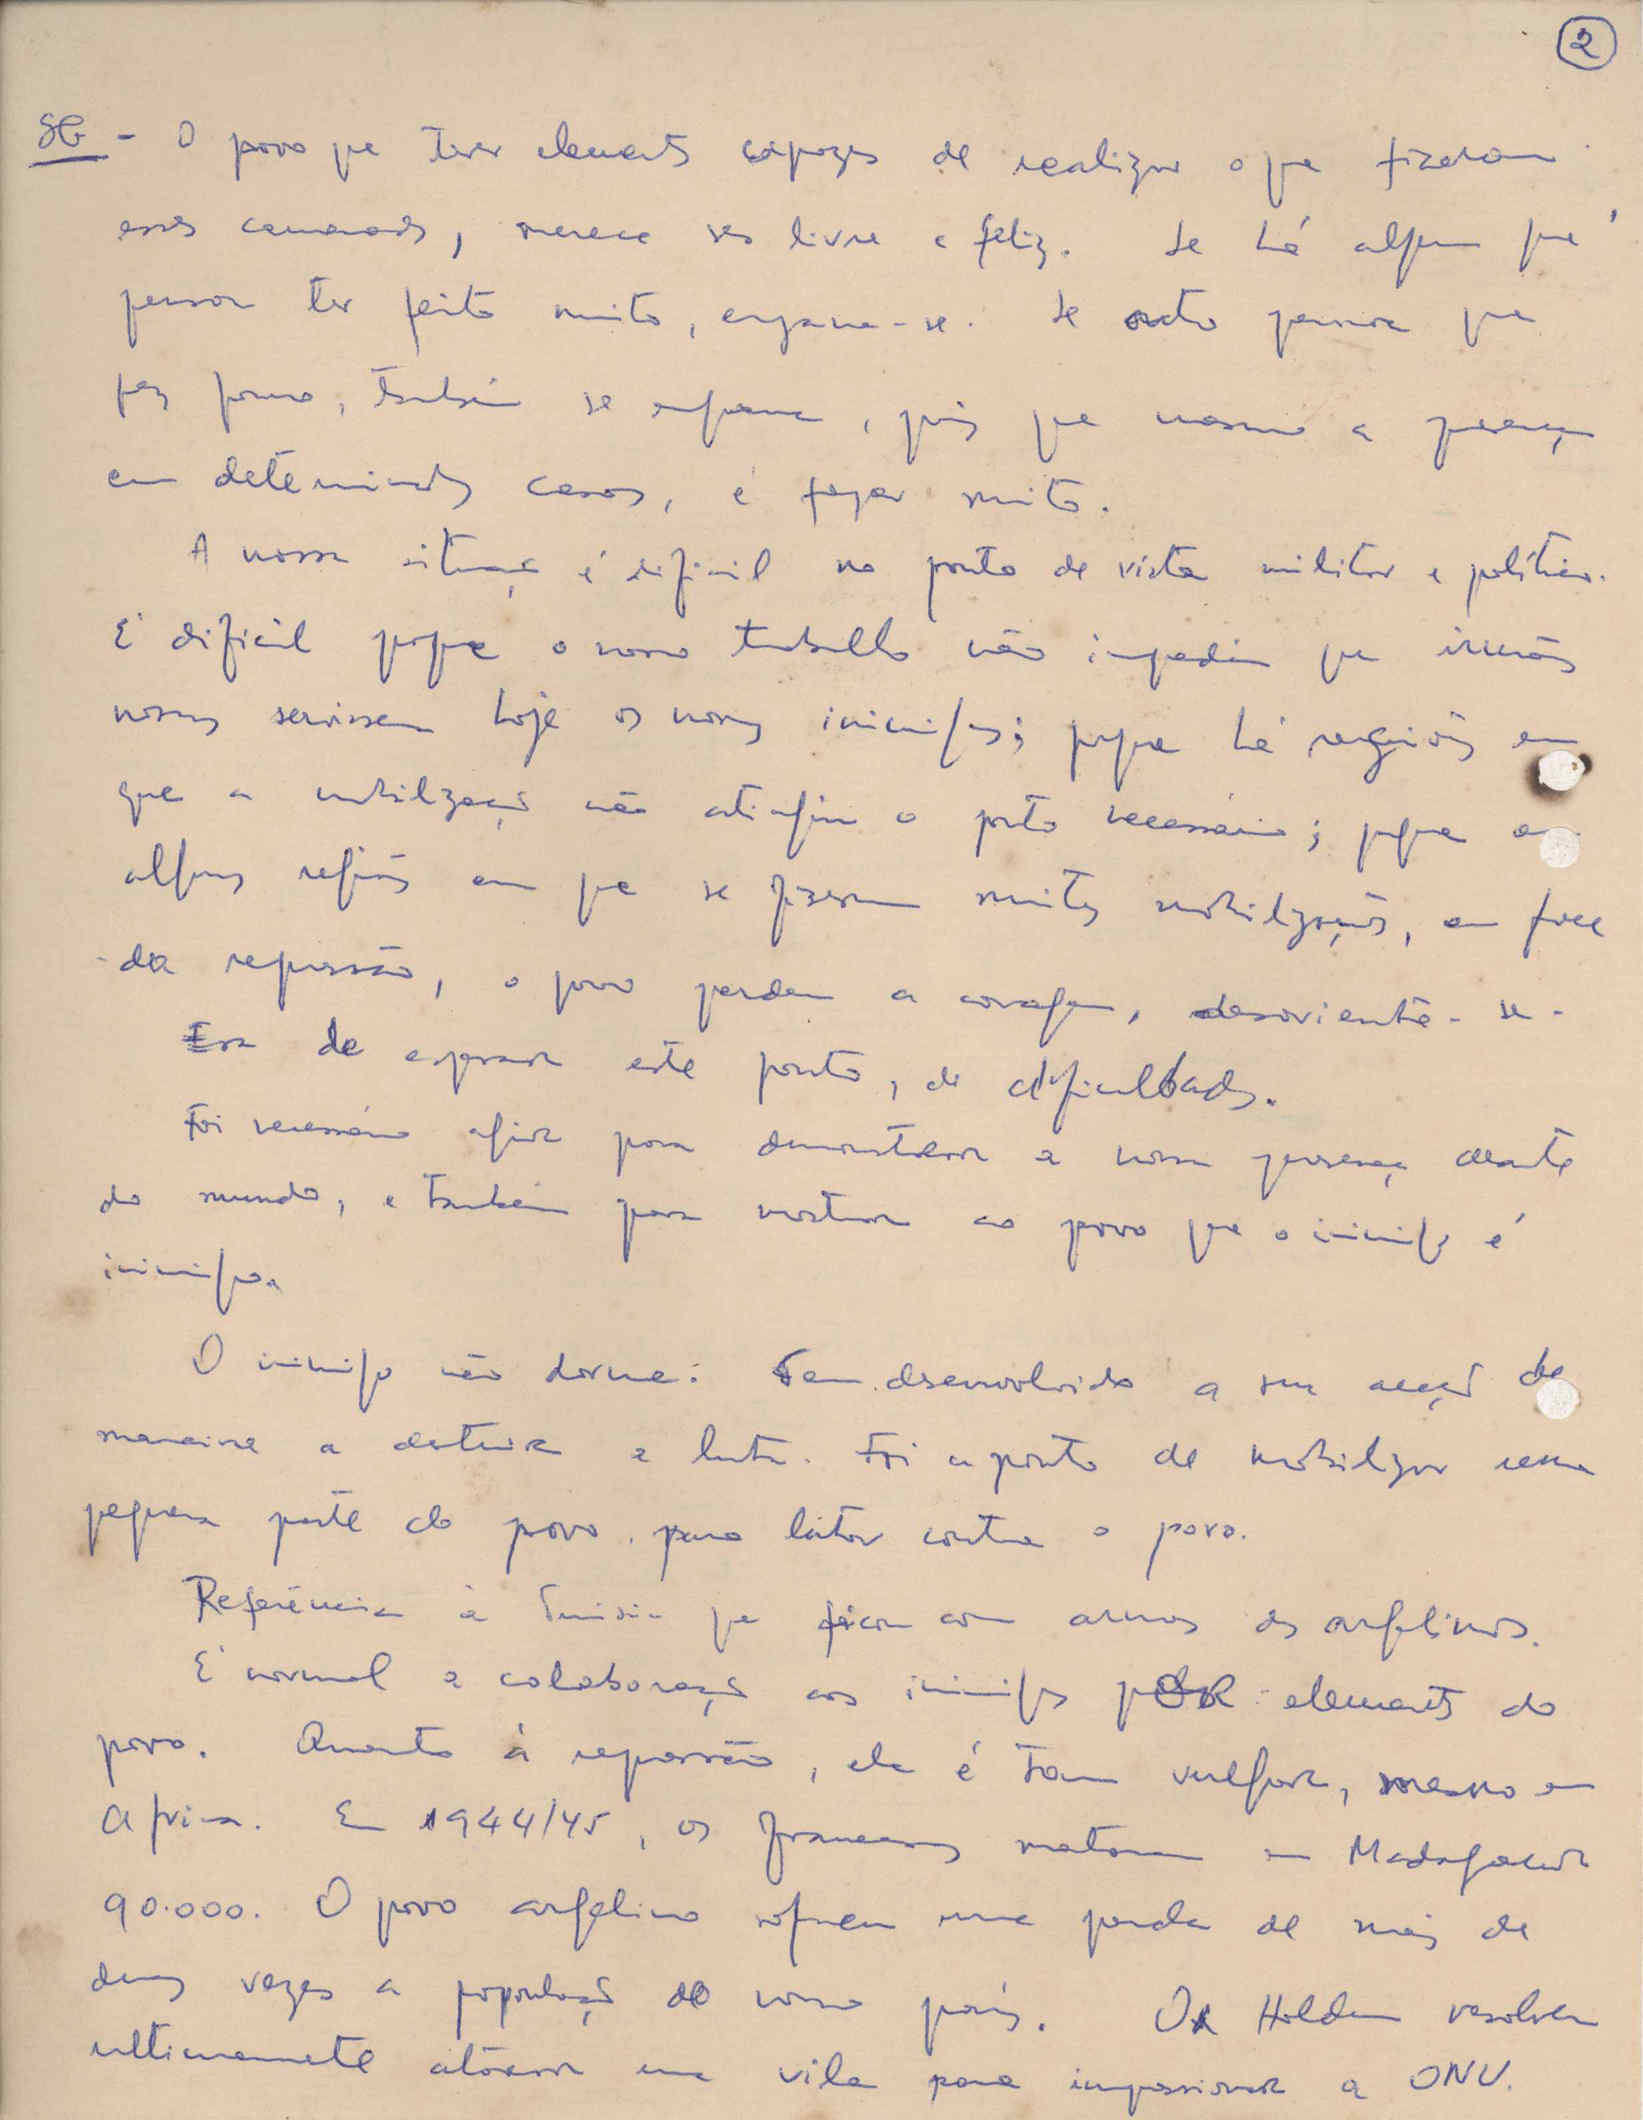 2
SG - O povo que tiver elementos capazes de realizar o que fizeram
esses camaradas, merece ser livre e feliz. Se há alguém que
pensou ter feito muito, engana-se. Se outro pensou que
fez pouco, também se engana, pois que mesmo a presença
em determinados casos, é fazer muito.
A nossa situação é difícil no ponto de vista militar e político.
É difícil porque o nosso trabalho não impediu que irmãos
nossos servissem hoje os nossos inimigos; porque há regiões em
que a mobilização não atingiu o ponto necessário; porque em
algumas regiões em que se fizeram muitas mobilizações, em face
da repressão, o povo perdeu a coragem, desorienta-se.
Era de esperar este ponto, de dificuldades.
Foi necessário agir para demonstrar a nossa presença diante
do mundo, e também para mostrar ao povo que o inimigo é
inimigo.
O inimigo não dorme: Tem desenvolvido a sua acção de
maneira a destruir a luta. Foi a ponto de mobilizar uma
pequena parte do povo para lutar contra o povo.
Referência à Tunísia que ficou com armas dos argelinos.
É normal a colaboração aos inimigos por elementos do
povo. Quanto à repressão, ela é tam vulgar, mesmo em
Africa. Em 1944/45, os franceses mataram em Madagascar
90.000. O povo argelino sofreu uma perda de mais de
duas vezes a população do nosso país. O Holden resolveu
ultimamente atacar uma vila para impressionar a ONU.